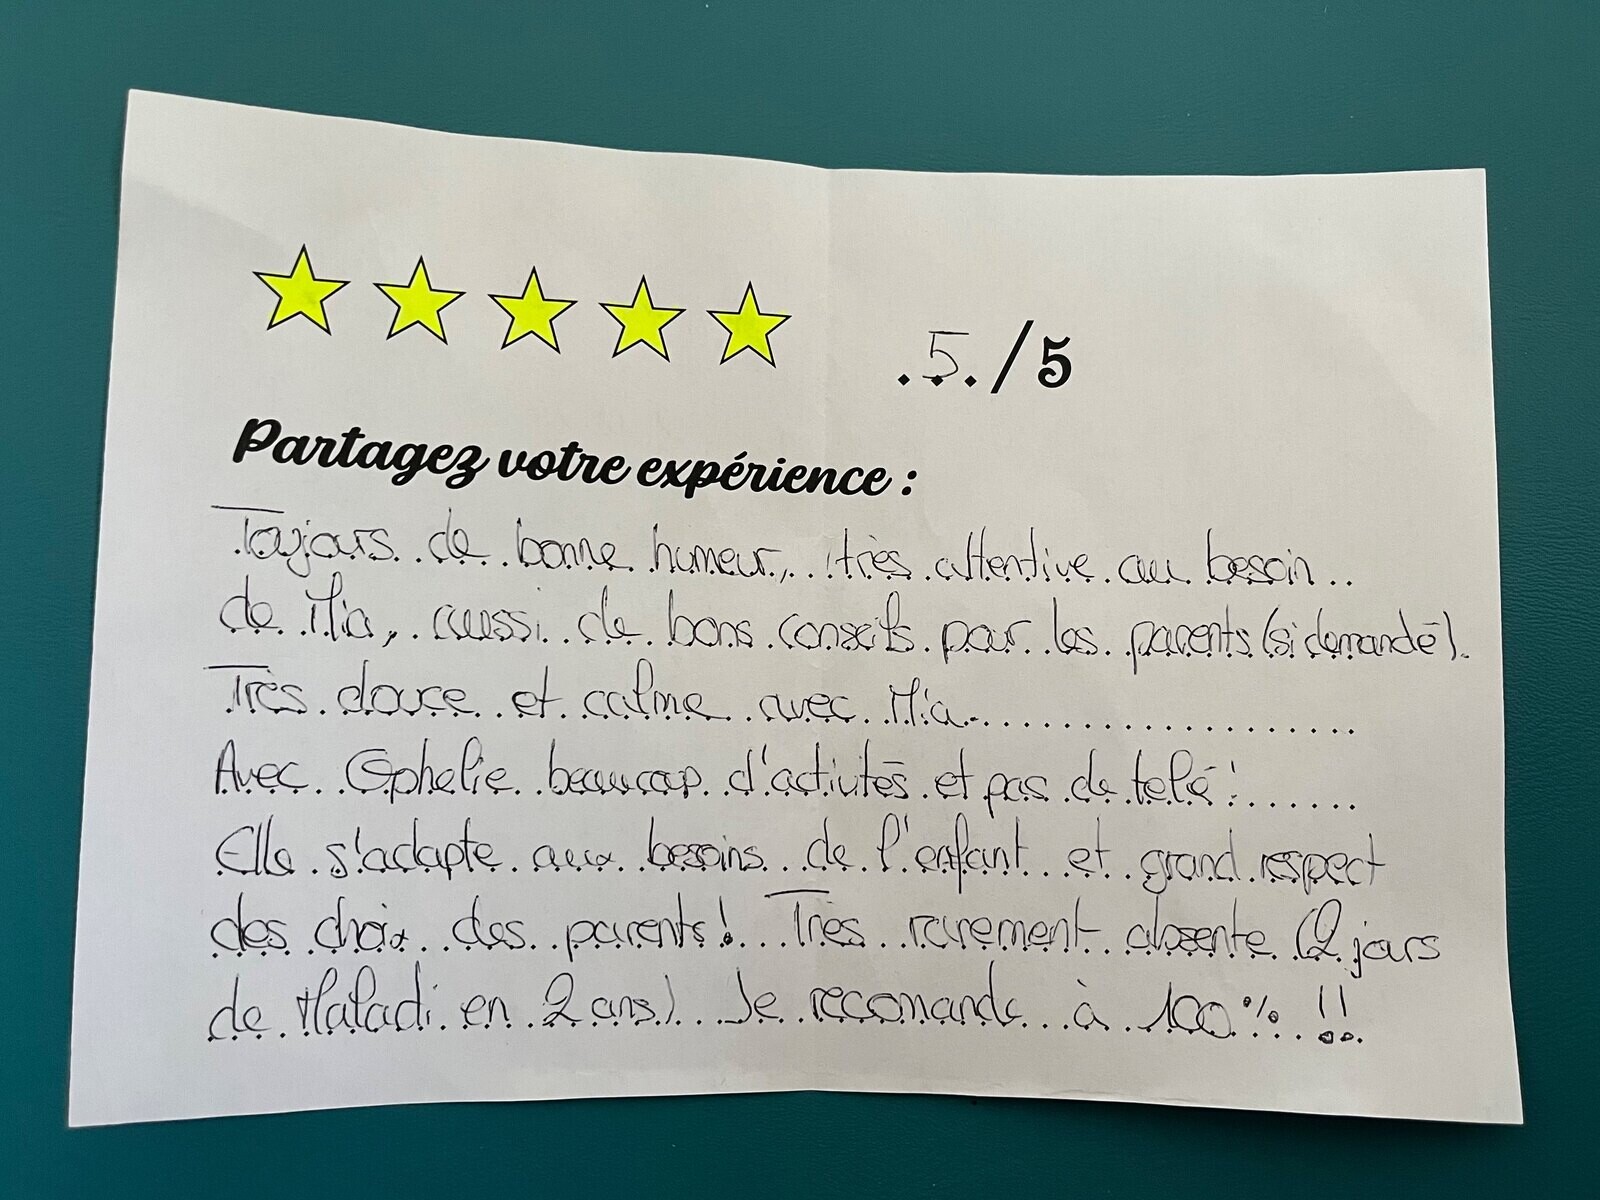 5/5
Partagez votre expérience :
Toujours de bonne humeur, très attentive au besoin
de Mia, aussi de bons conseils pour les parents (si demandé).
Très douce et calme avec Mia
Avec Ophelie beaucoup d'activités et pas de telé !
Elle s'adapte aux besoins de l'enfant et grand respect
des choix des parents ! Très rarement absente (2 jours
de Maladi en 2 ans) Je recomande à 100% !!